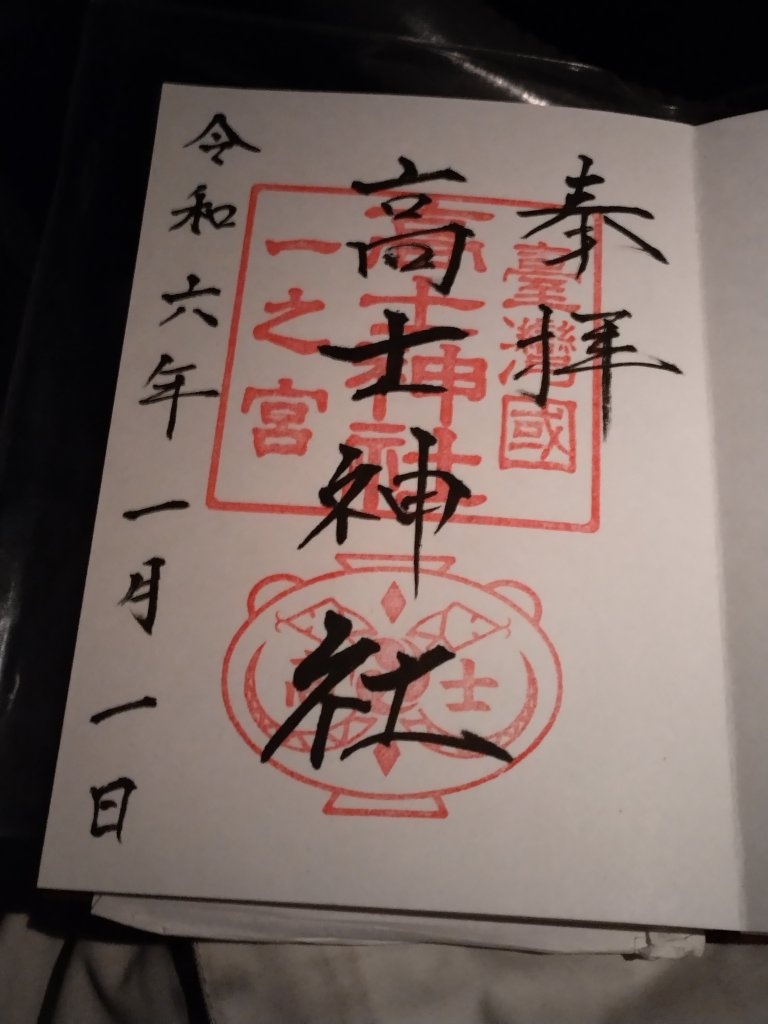 奉拝
臺灣國
高士神社
高士神社
一之宮
高士
令和六年一月一日